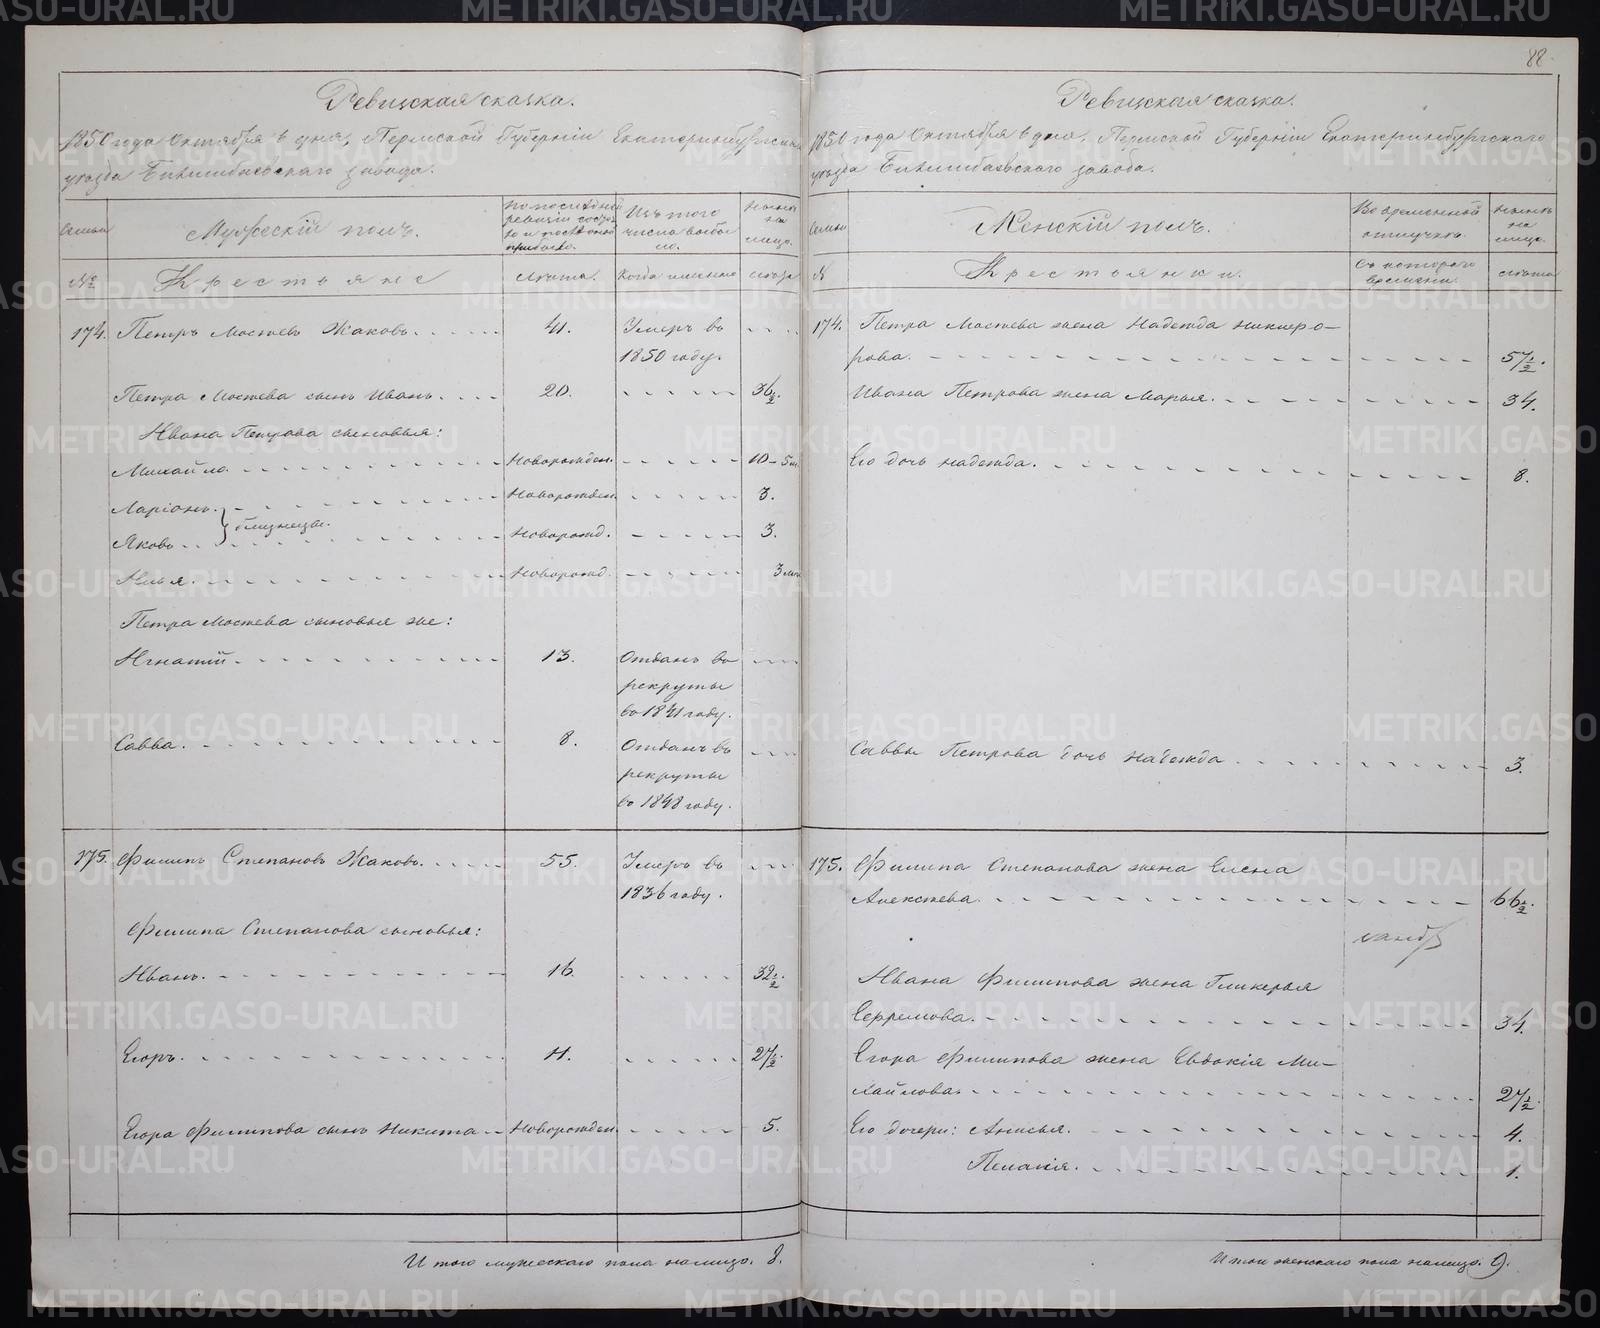 88
Ревизская сказка.
1850 года Октября 6 дня, Пермской Губерніи Екатеринбургскаго
уезда Билимбаевскаго завода.
Семьи
Мужескій полъ.
По последней ревизіи состояло и после оной прибыло.
Изъ того числа выбыло.
Ныне на лицо.
№
Крестьяне
Лѣта.
Когда именно
лѣта
174. Петръ Мосеевъ Жаковъ. 41. Умеръ въ
1850 году.
Петра Мосеева сынъ Иванъ. 20. 36½.
Ивана Петрова сыновья:
Михайло. Новорожден. 10 – 5 м.
Ларіонъ. Новорожден. 3.
близнецы.
Яковъ. Новорожд. 3.
Илья. Новорожд. 3 мес.
Петра Мосеева сыновья же:
Игнатій. 13. Отданъ въ
рекруты
въ 1841 году.
Савва. 8. Отданъ въ
рекруты
въ 1848 году.
175. Филипъ Степановъ Жаковъ. 55. Умеръ въ
1836 году.
Филипа Степанова сыновья:
Иванъ. 16. 32½.
Егоръ. 11. 27½.
Егора Филипова сынъ Никита Новорожден. 5.
Итого мужескаго пола налицо. 8.
Ревизская сказка.
1850 года Октября 6 дня, Пермской Губерніи Екатеринбургскаго
уезда Билимбаевскаго завода.
Семьи
Женскій полъ.
Во временной отлучке.
Ныне на лицо.
№
Крестьянки.
Съ котораго времени.
лѣта
174. Петра Мосеева жена Надежда Никиѳо–
рова. 57½.
Ивана Петрова жена Марья. 34.
Его дочь Надежда. 8.
Саввы Петрова дочь Надежда 3.
175. Филипа Степанова жена Елена
Алексеева. 66½.
Ивана Филипова жена Гликерья
Ефремова. 34.
Егора Филипова жена Евдокія Ми–
хайлова. 27½.
Его дочери: Анисья. 4.
Пелагія. 1.
Итого женскаго пола налицо. 9.
METRIKI.GASO-URAL.RU